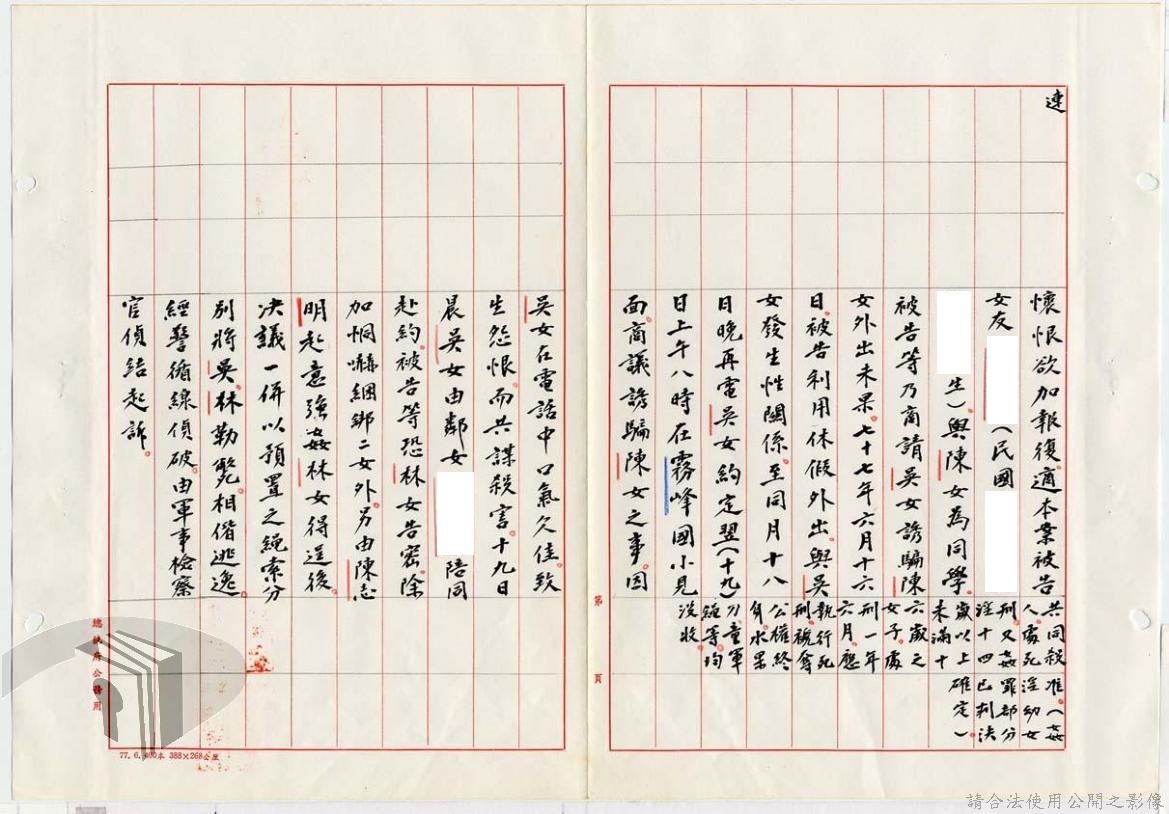 連
懷恨欲加報復。適本案被告
女友（民國
生）與陳女為同學。
被告等乃商請吳女誘騙陳
女外出未果。七十七年六月十六
日，被告利用休假外出，與吳
女發生性關係。至同月十八
日晚再電吳女約定翌（十九）
日上午八時在霧峰國小見
面，商議誘騙陳女之事。因
共同殺
人，處死
刑。又姦
淫十四
歲以上
未滿十
六歲之
女子，處
刑一年
六月。應
執行死
刑，褫奪
公權終
身。水果
刀、童軍
繩等均
沒收。
准。（姦
淫幼女
罪部分
已判決
確定。）
吳女在電話中口氣欠佳，致
生怨恨，而共謀殺害。十九日
晨吳女由鄰女陪同
赴約，被告等恐林女告密，除
加恫嚇綑綁二女外，另由陳志
明起意強姦林女得逞後，
決議一併以預置之繩索分
別將吳、林勒斃，相偕逃逸。
經警循線偵破，由軍事檢察
官偵結起訴。
第 頁
總統府公務用
77. 6. 400本 388×268公厘
請合法使用公開之影像